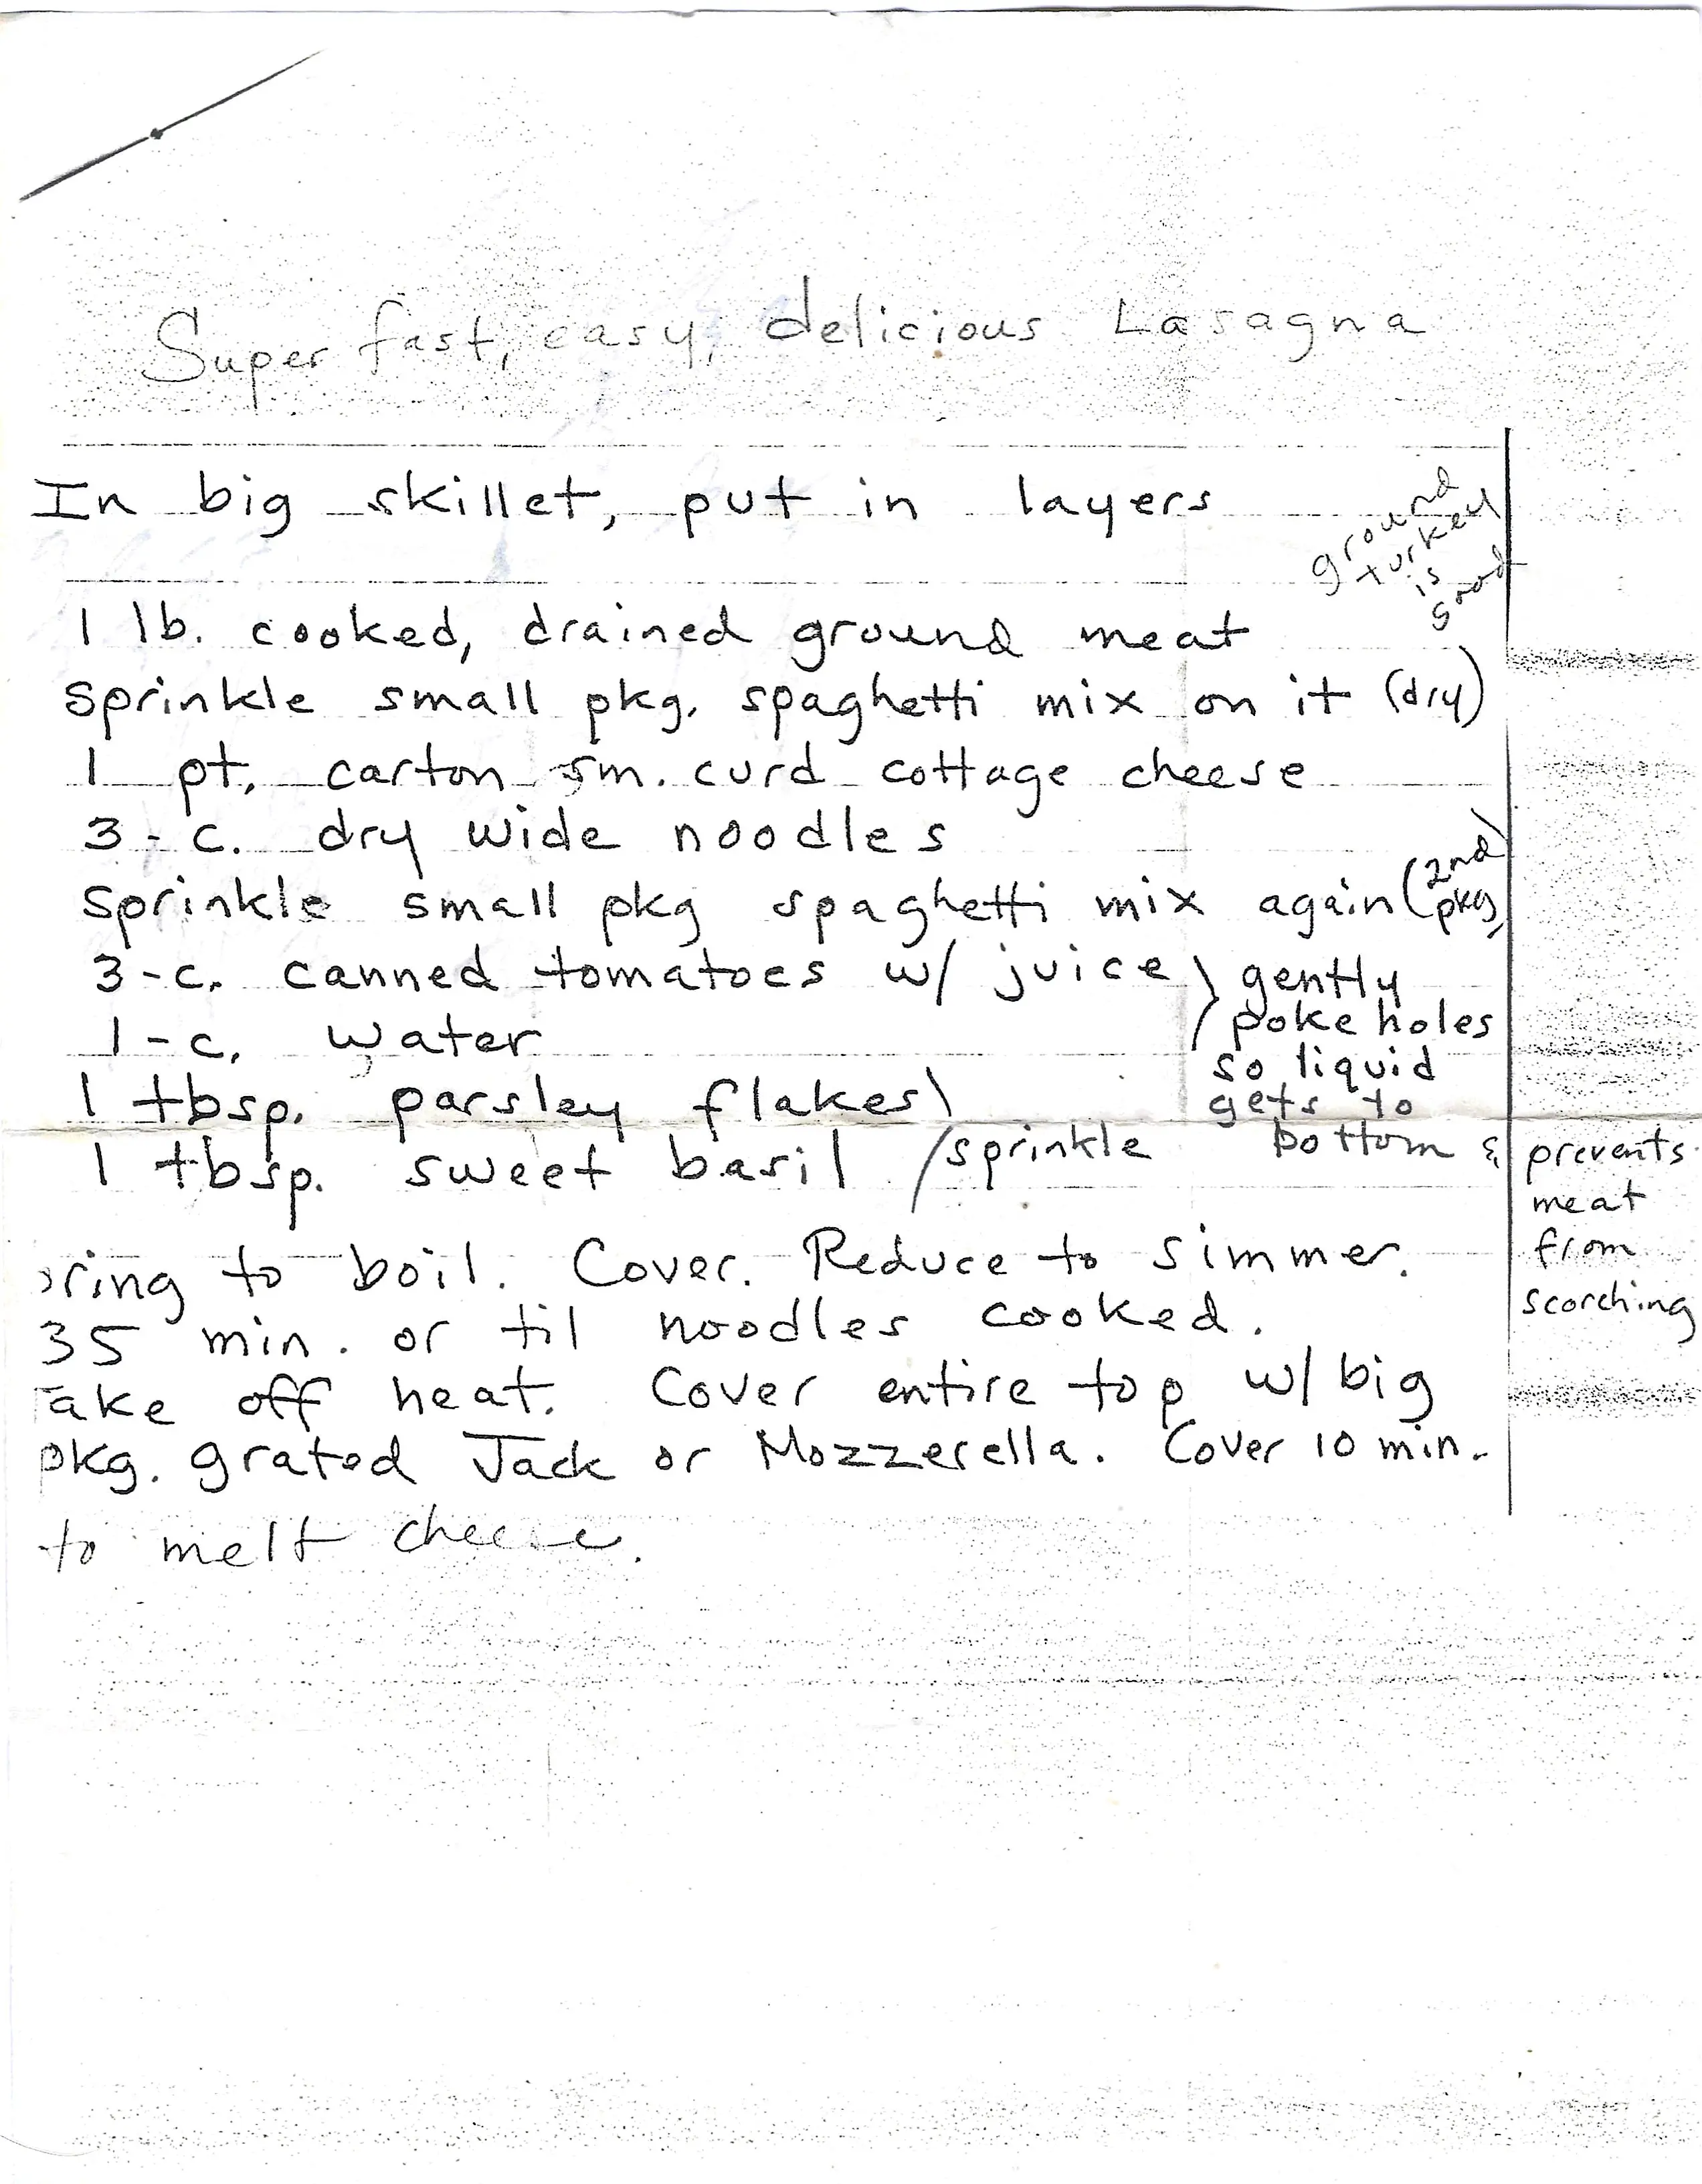 Super fast, easy, delicious Lasagna
In big skillet, put in layers
ground
turkey
is
good
1 lb. cooked, drained ground meat
sprinkle small pkg. spaghetti mix on it (dry)
1 pt. carton sm. curd cottage cheese
3 - c. dry wide noodles
sprinkle small pkg spaghetti mix again (2nd
pkg)
3 - c. canned tomatoes w/ juice
1 - c. water
gently
poke holes
so liquid
gets to
bottom & prevents
meat
from
scorching
1 tbsp. parsley flakes
1 tbsp. sweet basil / sprinkle
ring to boil. Cover. Reduce to simmer.
35 min. or til noodles cooked.
Take off heat. Cover entire top w/ big
pkg. grated Jack or Mozzerella. Cover 10 min.
to melt cheese.